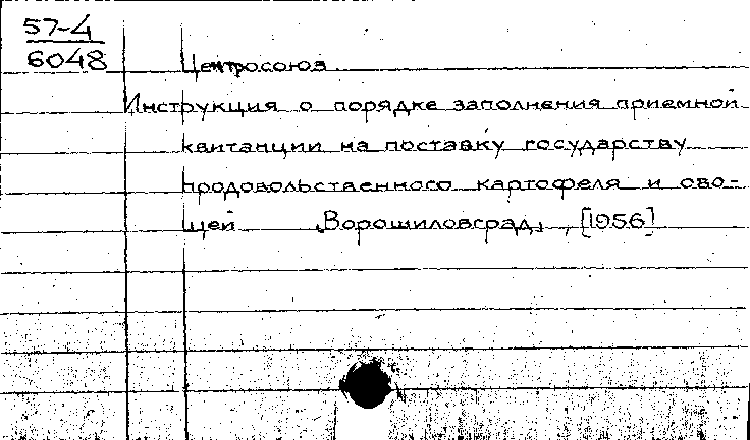 57-4
6048
Центросоюз
Инструкция о порядке заполнения приемной
квитанции на поставку государству
продовольственного картофеля и ово-
щей Ворошиловград, [1956]